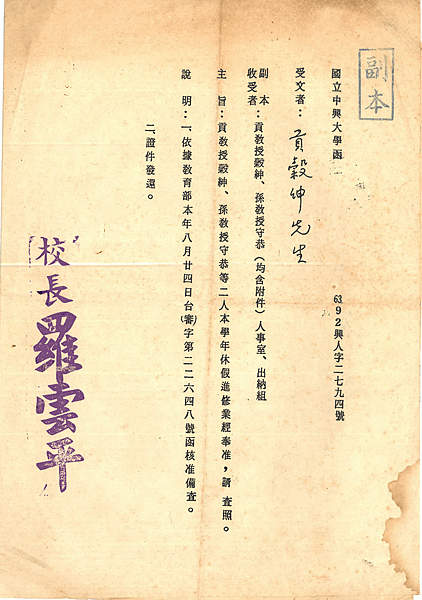 副本
國立中興大學函
63 9 2 興人字二七九四號
受文者：貢穀紳先生
副本收受者：貢教授穀紳、孫教授守恭（均含附件）人事室、出納組
主旨：貢教授穀紳、孫教授守恭等二人本學年休假進修業經奉准，請查照。
說明：一、依據教育部本年八月廿四日台(審)字第二二六四八號函核准備查。
二、證件發還。
校長羅雲平